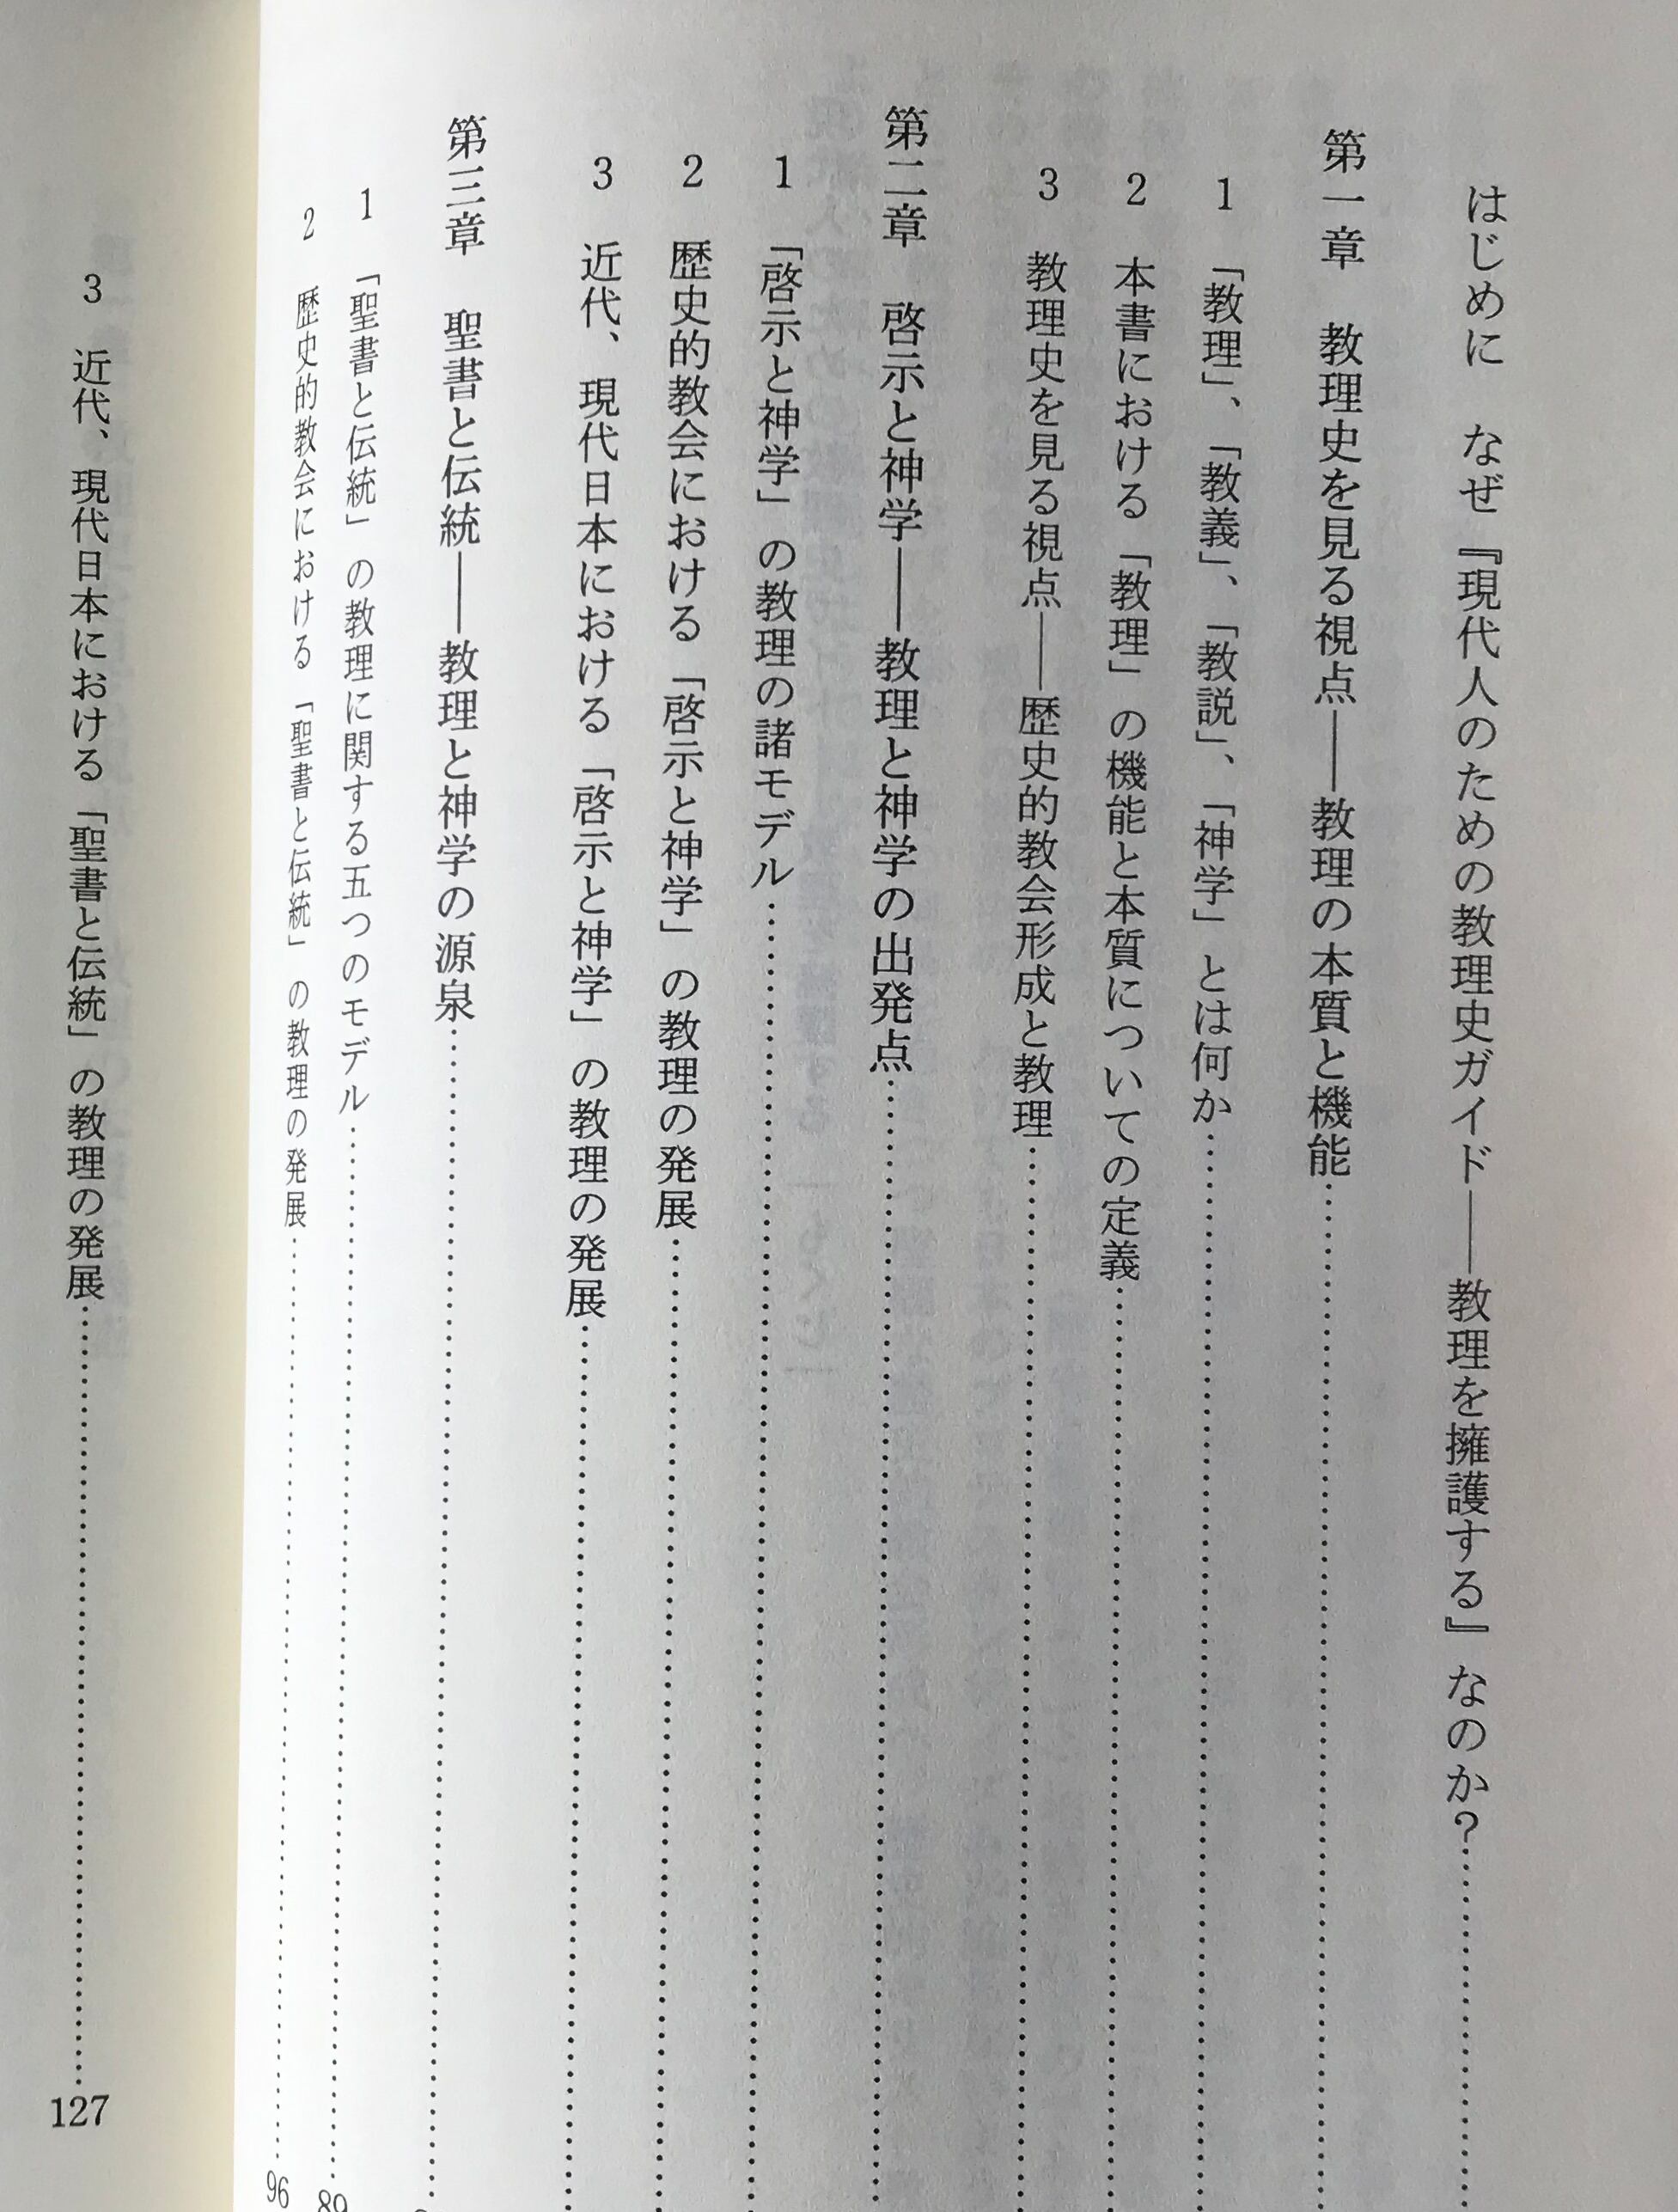 はじめに　なぜ『現代人のための教理史ガイド――教理を擁護する』なのか？……
第一章　教理史を見る視点――教理の本質と機能……
1　「教理」、「教義」、「教説」、「神学」とは何か……
2　本書における「教理」の機能と本質についての定義……
3　教理史を見る視点――歴史的教会形成と教理……
第二章　啓示と神学――教理と神学の出発点……
1　「啓示と神学」の教理の諸モデル……
2　歴史的教会における「啓示と神学」の教理の発展……
3　近代、現代日本における「啓示と神学」の教理の発展……
第三章　聖書と伝統――教理と神学の源泉……
1　「聖書と伝統」の教理に関する五つのモデル……89
2　歴史的教会における「聖書と伝統」の教理の発展……96
3　近代、現代日本における「聖書と伝統」の教理の発展……127